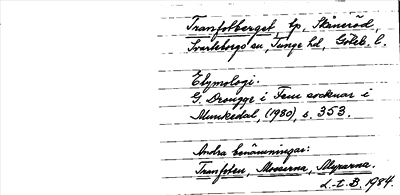 Tranfolberget, bp, Skåneröd,
Svarteborgs sn, Tunge hd, Göteb. l.
Etymologi:
G. Drougge i Fem socknar i
Munkedal, (1980), s. 353.
Andra benämningar:
Tranfolen, Mossarna, Myrarna.
L-t. B. 1984.